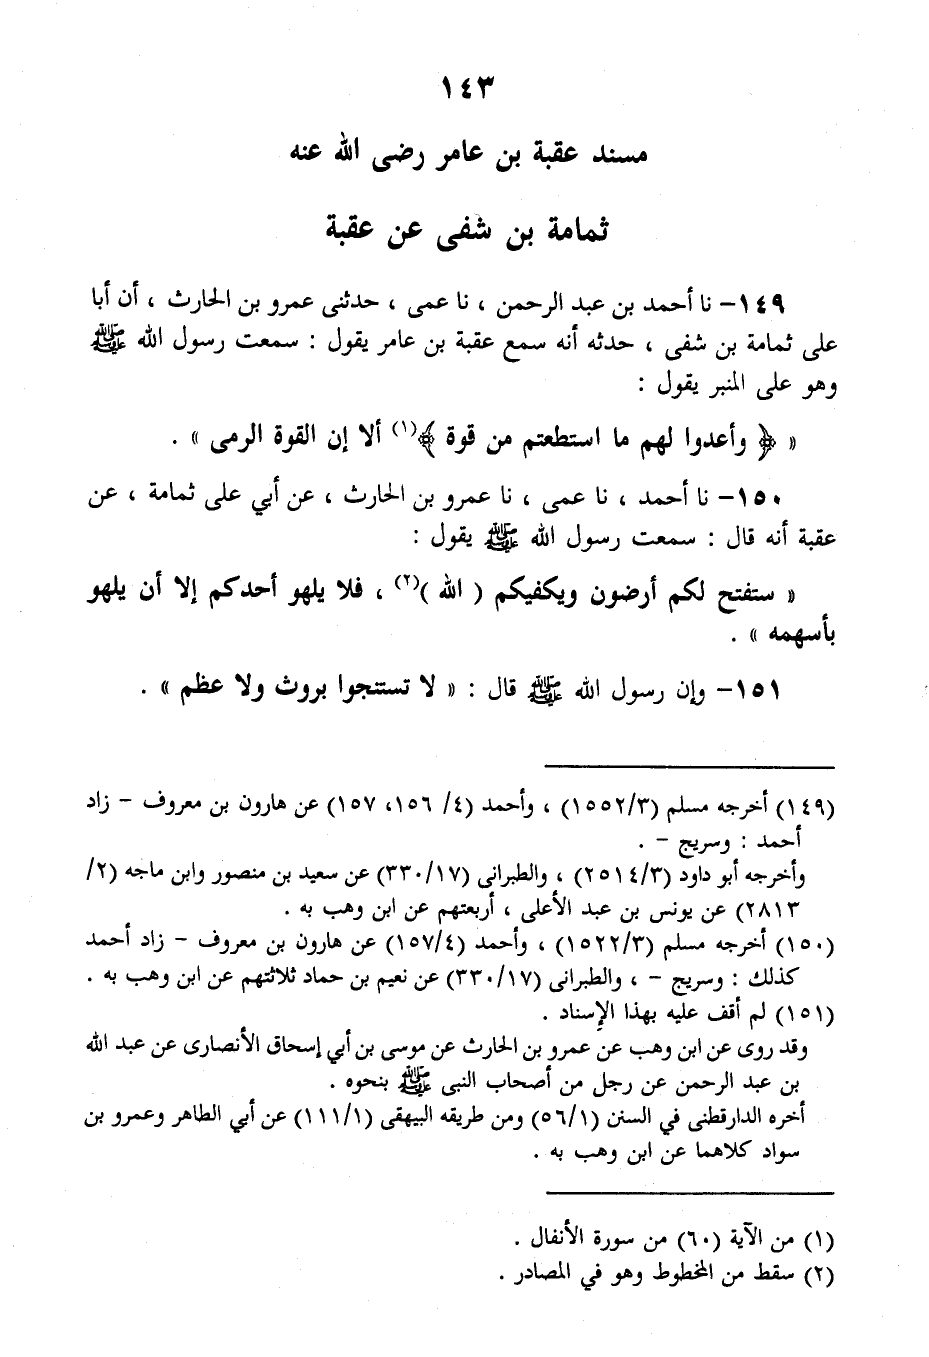 ١٤٣
مسند عقبة بن عامر رضى الله عنه
ثمامة بن شفى عن عقبة
١٤٩– نا أحمد بن عبد الرحمن ، نا عمى ، حدثنى عمرو بن الحارث ، أن أبا
على ثمامة بن شفى ، حدثه أنه سمع عقبة بن عامر يقول : سمعت رسول الله ﷺ
وهو على المنبر يقول :
« ﴿ وأعدوا لهم ما استطعتم من قوة ﴾(١) ألا إن القوة الرمى » .
١٥٠– نا أحمد ، نا عمى ، نا عمرو بن الحارث ، عن أبي على ثمامة ، عن
عقبة أنه قال : سمعت رسول الله ﷺ يقول :
« ستفتح لكم أرضون ويكفيكم ( الله )(٢) ، فلا يلهو أحدكم إلا أن يلهو
بأسهمه » .
١٥١– وإن رسول الله ﷺ قال : « لا تستنجوا بروث ولا عظم » .
(١٤٩) أخرجه مسلم (١٥٥٢/٣) ، وأحمد (٤/ ١٥٦، ١٥٧) عن هارون بن معروف – زاد
أحمد : وسريج – .
وأخرجه أبو داود (٢٥١٤/٣) ، والطبرانى (٣٣٠/١٧) عن سعيد بن منصور وابن ماجه (٢/
٢٨١٣) عن يونس بن عبد الأعلى ، أربعتهم عن ابن وهب به .
(١٥٠) أخرجه مسلم (١٥٢٢/٣) ، وأحمد (١٥٧/٤) عن هارون بن معروف – زاد أحمد
كذلك : وسريج – ، والطبرانى (٣٣٠/١٧) عن نعيم بن حماد ثلاثتهم عن ابن وهب به .
(١٥١) لم أقف عليه بهذا الإسناد .
وقد روى عن ابن وهب عن عمرو بن الحارث عن موسى بن أبي إسحاق الأنصارى عن عبد الله
بن عبد الرحمن عن رجل من أصحاب النبى ﷺ بنحوه .
أخره الدارقطنى في السنن (٥٦/١) ومن طريقه البيهقى (١١١/١) عن أبي الطاهر وعمرو بن
سواد كلاهما عن ابن وهب به .
(١) من الآية (٦٠) من سورة الأنفال .
(٢) سقط من المخطوط وهو في المصادر .